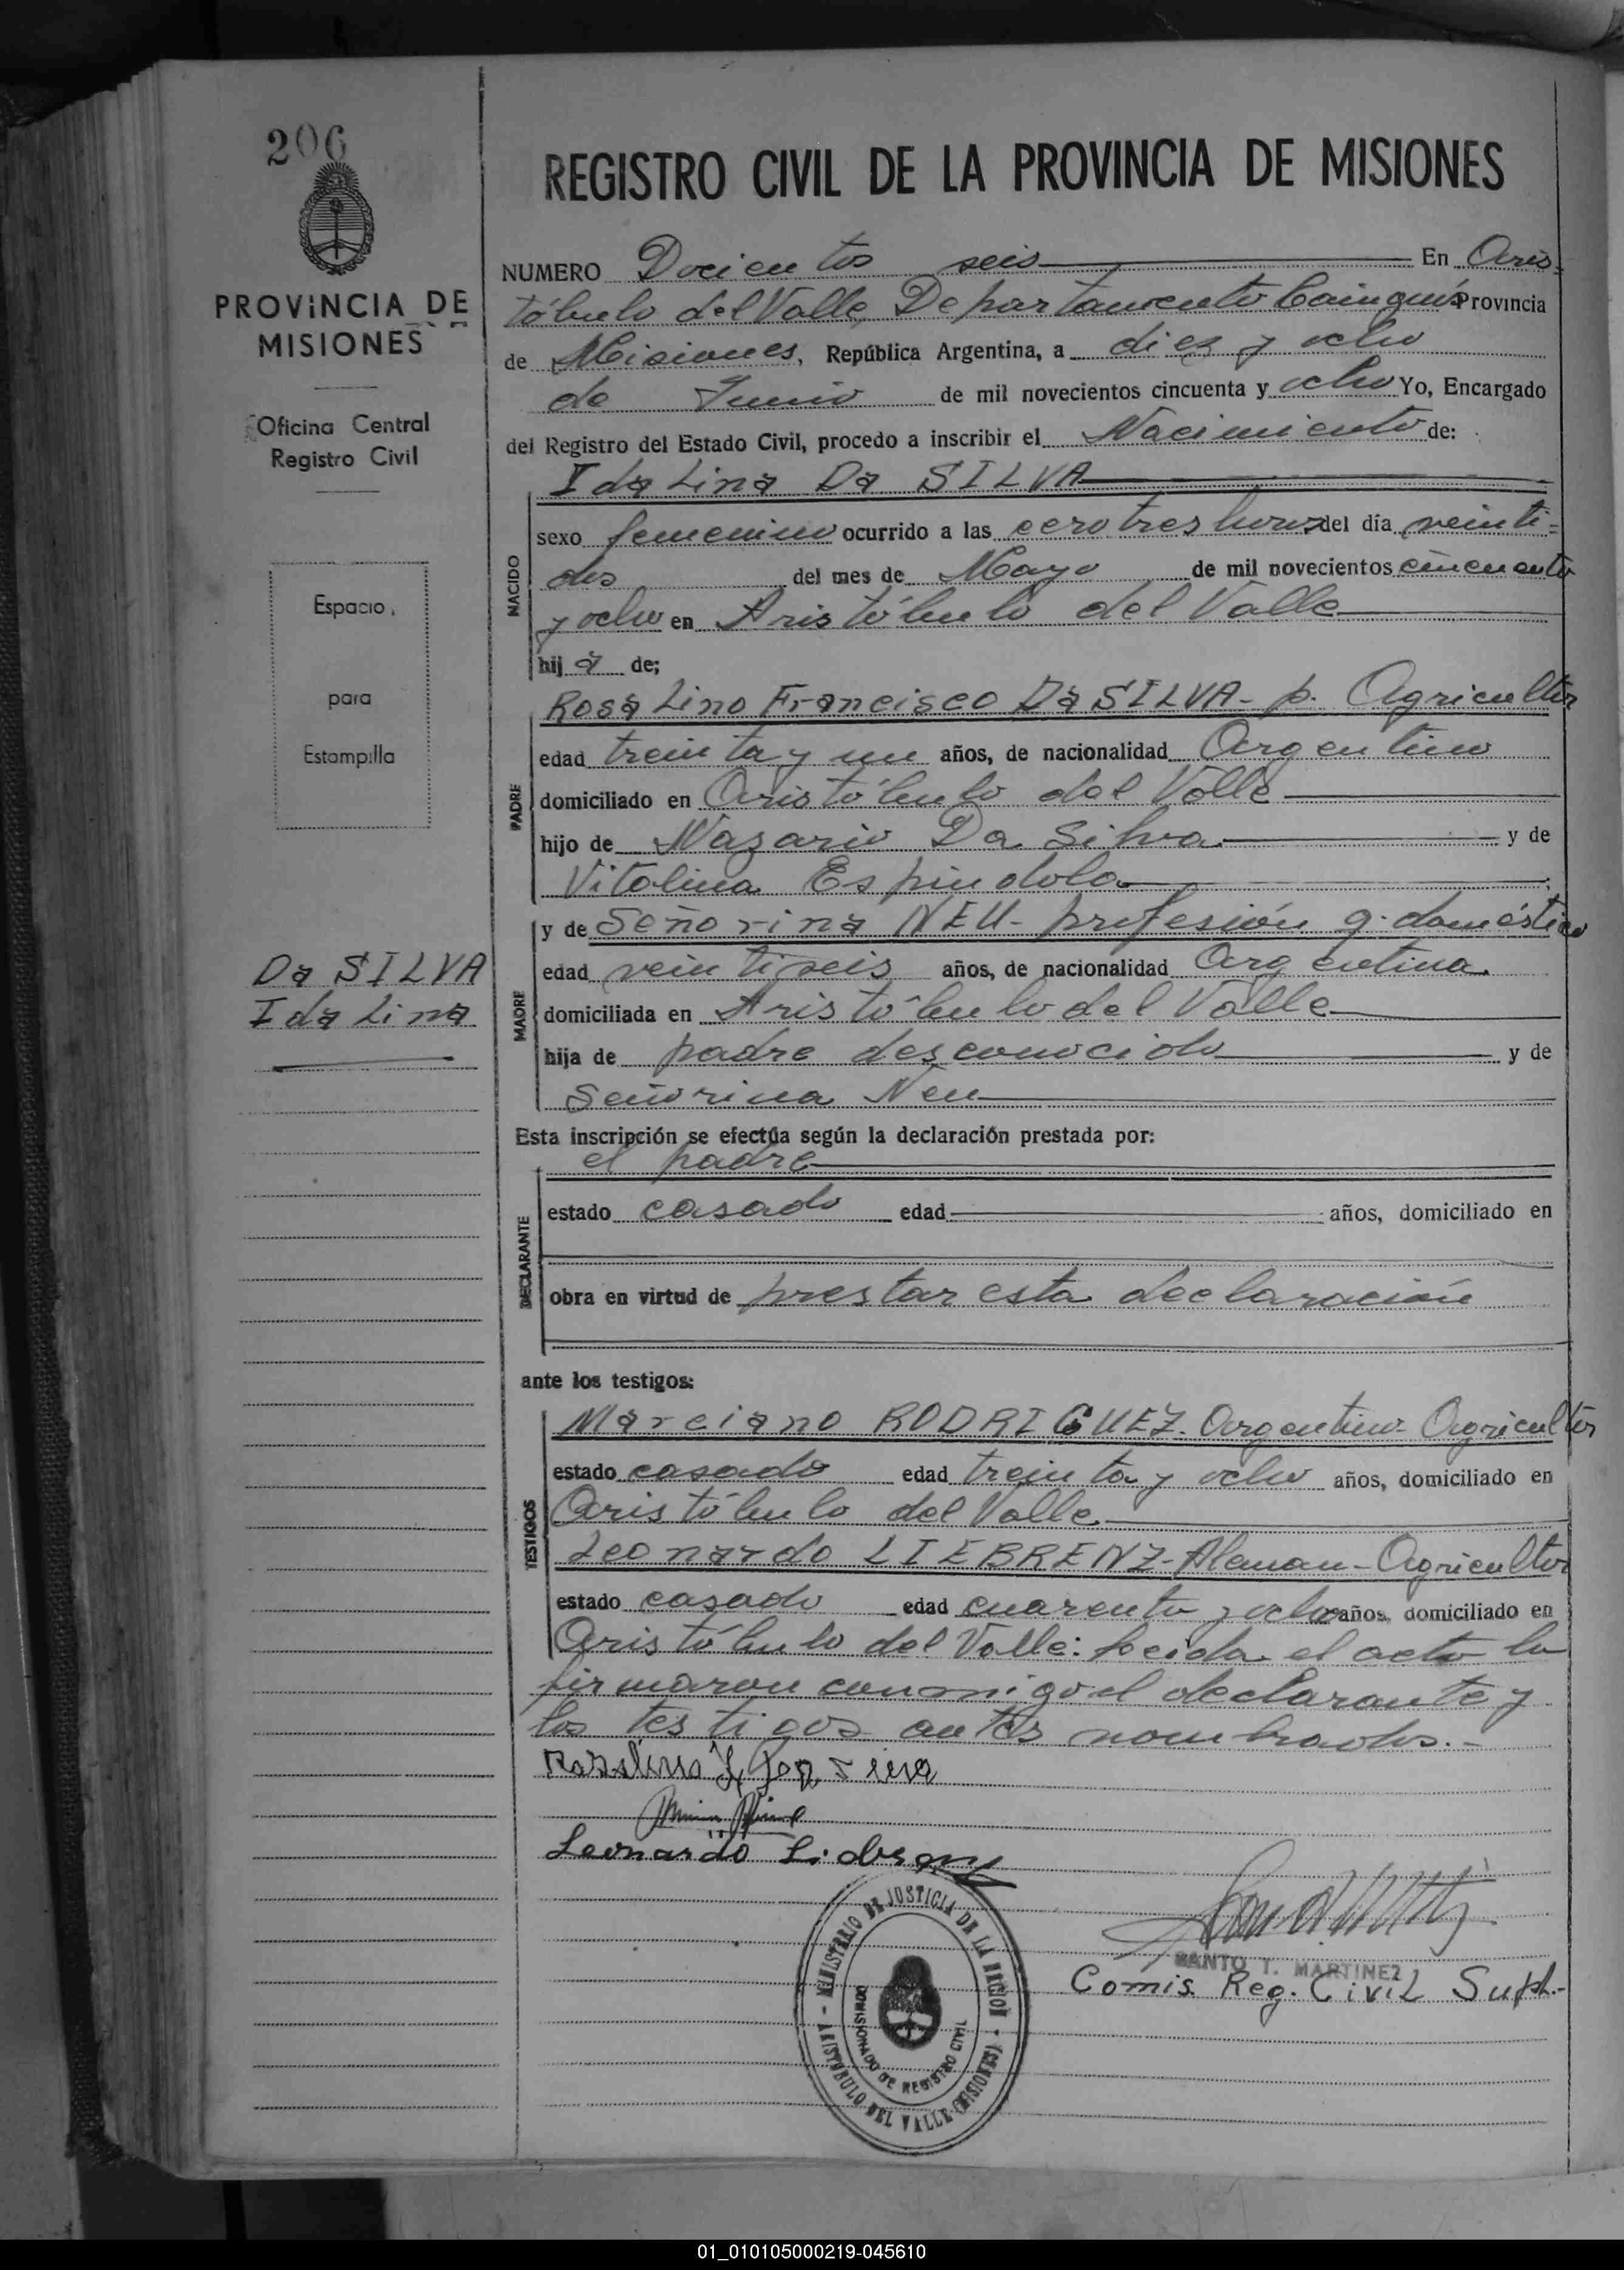 206
REGISTRO CIVIL DE LA PROVINCIA DE MISIONES
PROVINCIA DE
MISIONES
Oficina Central
Registro Civil
Espacio
para
Estampilla
Da SILVA
Idalina
NUMERO Docientos seis En Aris-
tóbulo del Valle, Departamento Cainguás Provincia
de Misiones, República Argentina, a diez y ocho
de Junio de mil novecientos cincuenta y ocho Yo, Encargado
del Registro del Estado Civil, procedo a inscribir el Nacimiento de:
Idalina Da SILVA
NACIDO
sexo femenino ocurrido a las cero tres horas del día veinti-
dos del mes de Mayo de mil novecientos cincuenta
y ocho en Aristóbulo del Valle
hij a de;
PADRE
Rosalino Francisco Da SILVA - p. Agricultor
edad treinta y un años, de nacionalidad Argentino
domiciliado en Aristóbulo del Valle
hijo de Nazario Da Silva y de
Vitolina Espindola
MADRE
y de Señorina NEU - profesión q. doméstico
edad veintiseis años, de nacionalidad Argentina
domiciliada en Aristóbulo del Valle
hija de padre desconocido y de
Señorina Neu
Esta inscripción se efectúa según la declaración prestada por:
el padre
DECLARANTE
estado casado edad años, domiciliado en
obra en virtud de prestar esta declaración
ante los testigos:
TESTIGOS
Marciano RODRIGUEZ. Argentino - Agricultor
estado casado edad treinta y ocho años, domiciliado en
Aristóbulo del Valle
Leonardo LIEBRENZ - Aleman - Agricultor
estado casado edad cuarenta y ocho años, domiciliado en
Aristóbulo del Valle: leida el acta la
firmaron conmigo el declarante y
los testigos antes nombrados.-
Leonardo
SANTO T. MARTINEZ
Comis. Reg. Civil Supl.-
MINISTERIO DE JUSTICIA DE LA NACION - ARISTOBULO DEL VALLE (MISIONES)
COMISIONADO DE REGISTRO CIVIL
01_010105000219-045610